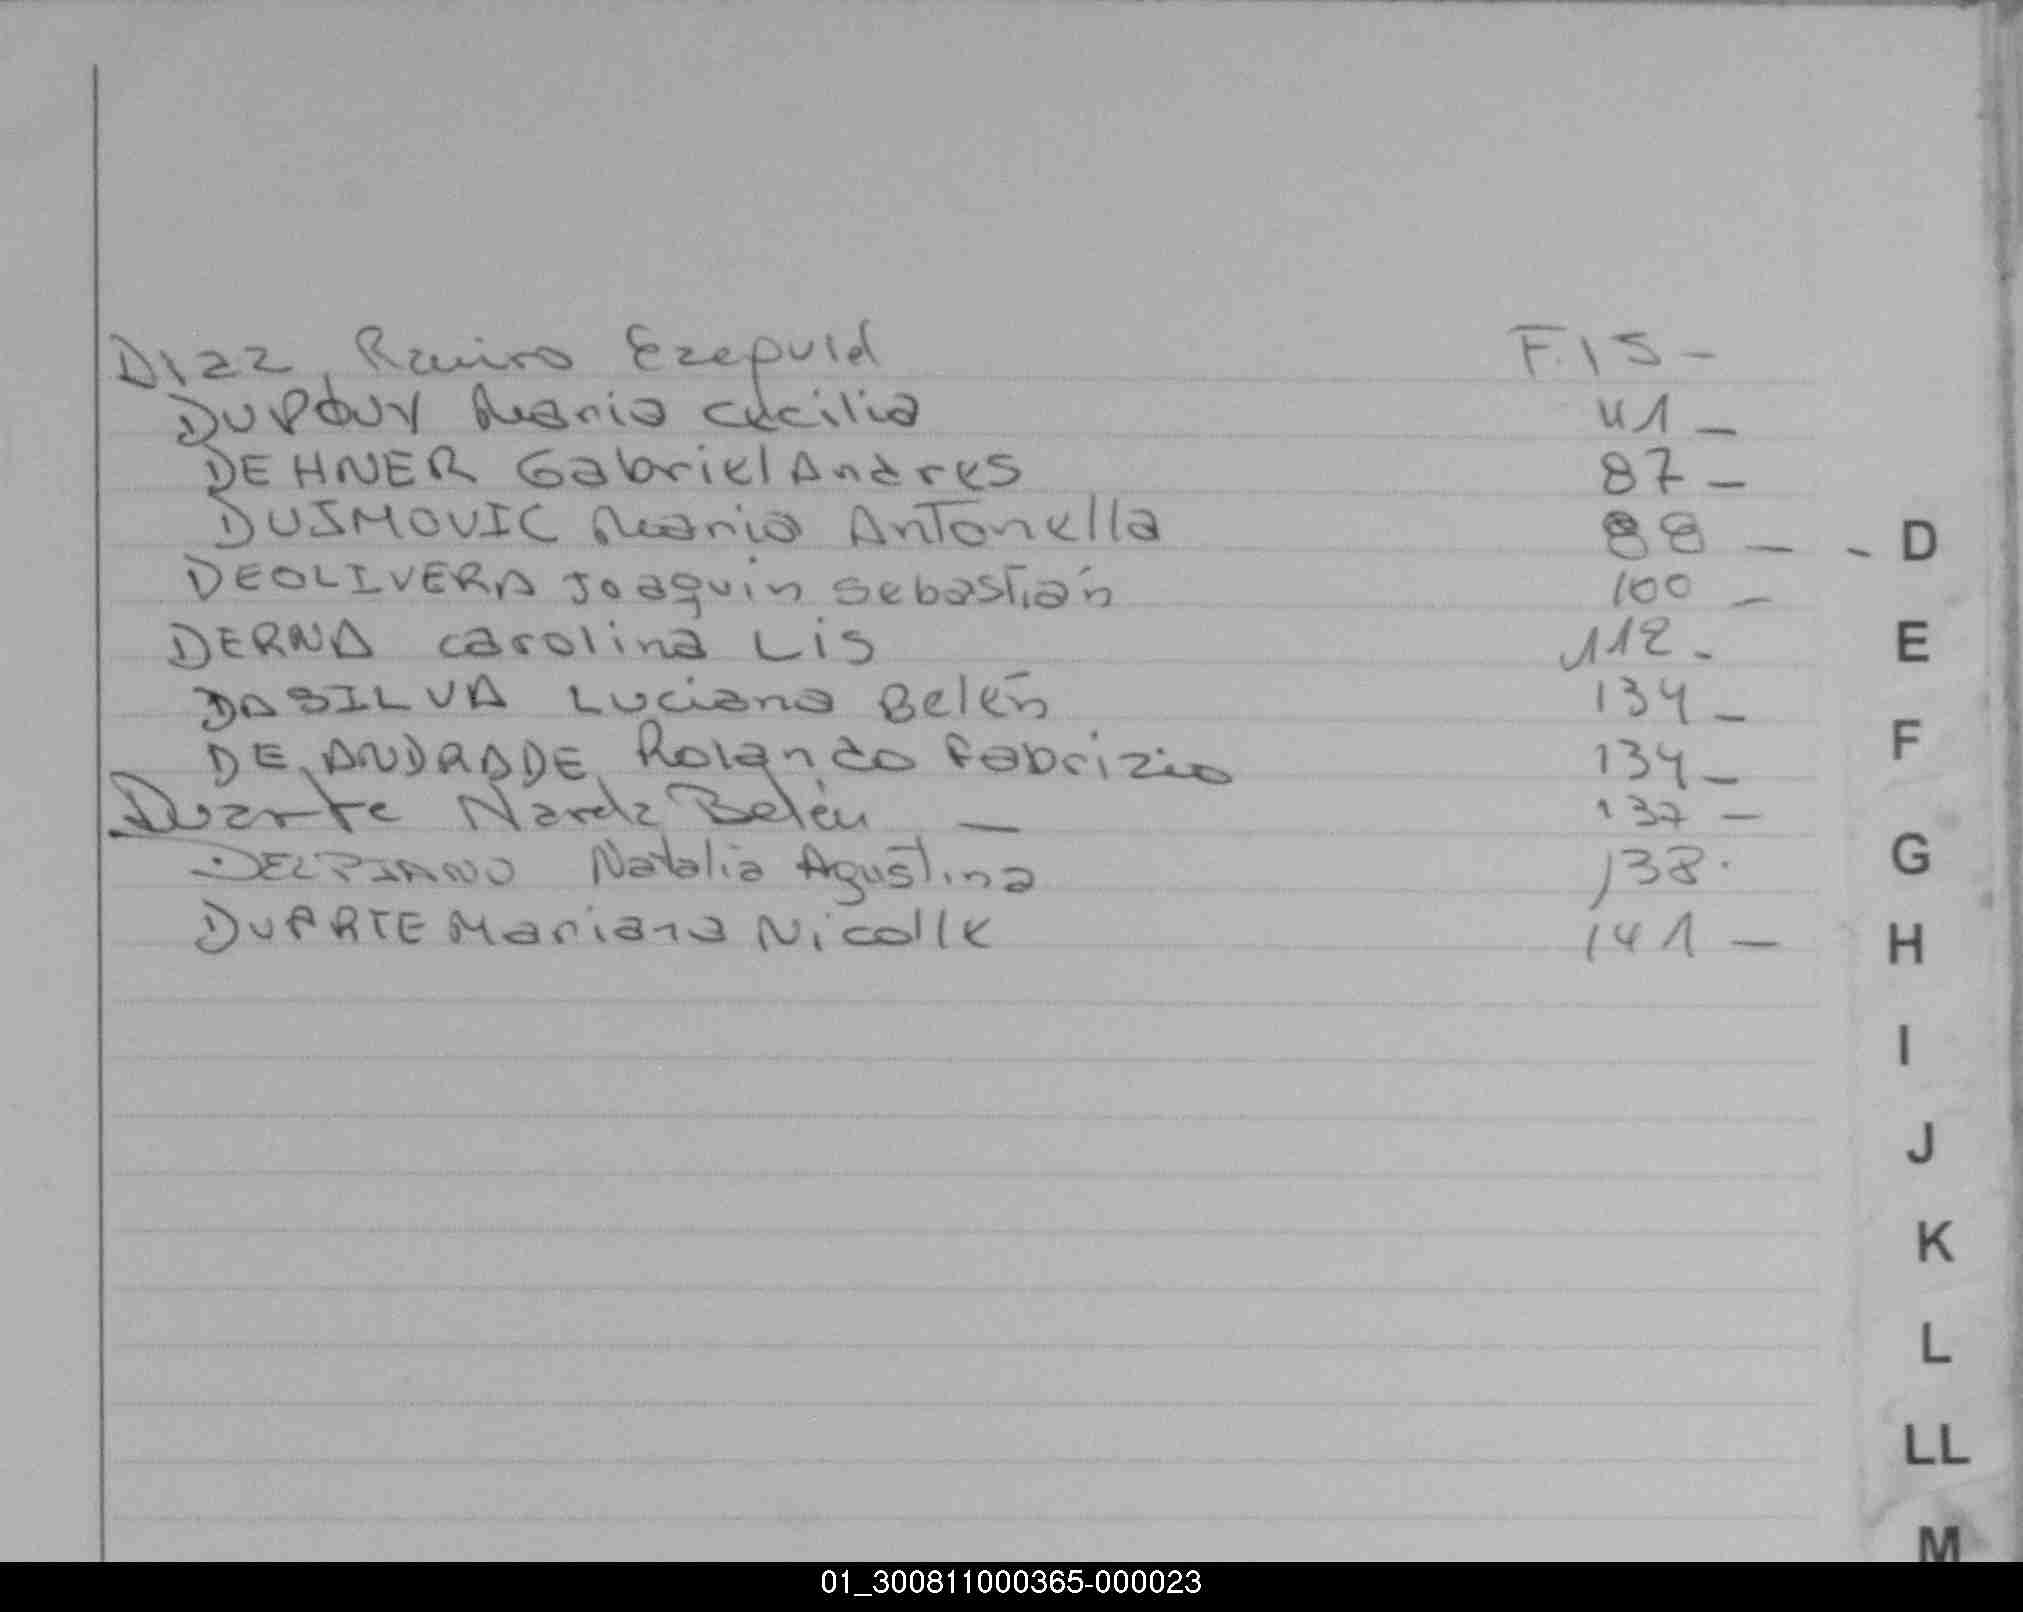 Diaz, Ramiro Ezequiel F. 15 -
DUPOUY Maria Cecilia 41 -
DEHNER Gabriel Andres 87 -
DUSMOVIC Maria Antonella 88 - - D
DEOLIVERA Joaquin Sebastián 100 -
DERNA Carolina Lis 112 -
E
DASILVA Luciana Belén 134 -
DE ANDRADE Rolando Fabrizio 134 -
F
Duarte Narda Belén - 137 -
DELPIANO Natalia Agustina 138.
G
DUARTE Mariana Nicolle 141 -
H
I
J
K
L
LL
M
01_300811000365-000023